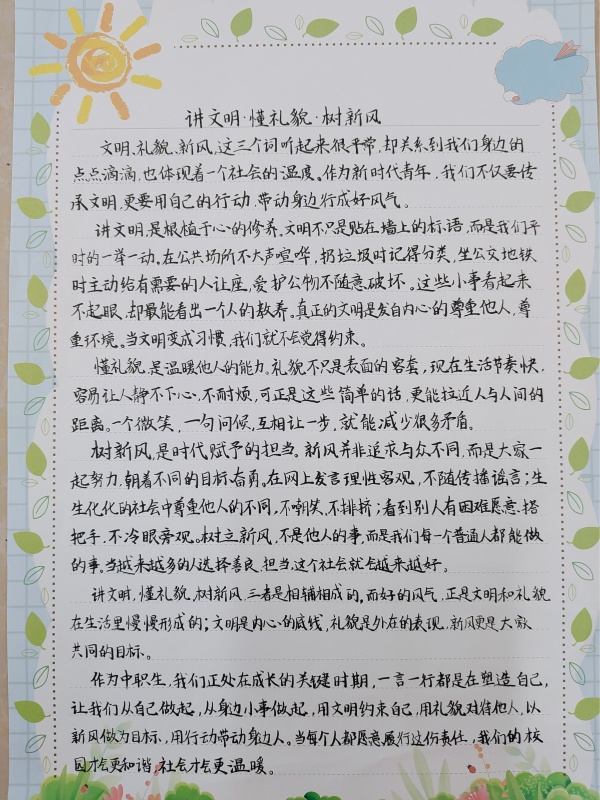 讲文明·懂礼貌·树新风
文明、礼貌、新风,这三个词听起来很平常,却关系到我们身边的
点点滴滴,也体现着一个社会的温度。作为新时代青年,我们不仅要传
承文明,更要用自己的行动,带动身边行成好风气。
讲文明,是根植于心的修养,文明不只是贴在墙上的标语,而是我们平
时的一举一动。在公共场所不大声喧哗,扔垃圾时记得分类,坐公交地铁
时主动给有需要的人让座,爱护公物不随意破坏。这些小事看起来
不起眼,却最能看出一个人的教养。真正的文明是发自内心的尊重他人,尊
重环境。当文明变成习惯,我们就不会觉得约束。
懂礼貌,是温暖他人的能力,礼貌不只是表面的客套,现在生活节奏快,
容易让人静不下心,不耐烦,可正是这些简单的话,更能拉近人与人间的
距离。一个微笑,一句问候,互相让一步,就能减少很多矛盾。
树新风,是时代赋予的担当。新风并非追求与众不同,而是大家一
起努力,朝着不同的目标奋勇。在网上发言理性客观,不随传播谣言;生
生化化的社会中尊重他人的不同,不嘲笑、不排挤;看到别人有困难愿意搭
把手,不冷眼旁观。树立新风,不是他人的事,而是我们每一个普通人都能做
的事,当越来越多的人选择善良,担当,这个社会就会越来越好。
讲文明,懂礼貌,树新风,三者是相辅相成的。而好的风气,正是文明和礼貌
在生活里慢慢形成的;文明是内心的底线,礼貌是外在的表现,新风更是大家
共同的目标。
作为中职生,我们正处在成长的关键时期,一言一行都是在塑造自己,
让我们从自己做起,从身边小事做起,用文明约束自己,用礼貌对待他人,以
新风做为目标,用行动带动身边人。当每个人都愿意履行这份责任,我们的校
园才会更和谐,社会才会更温暖。